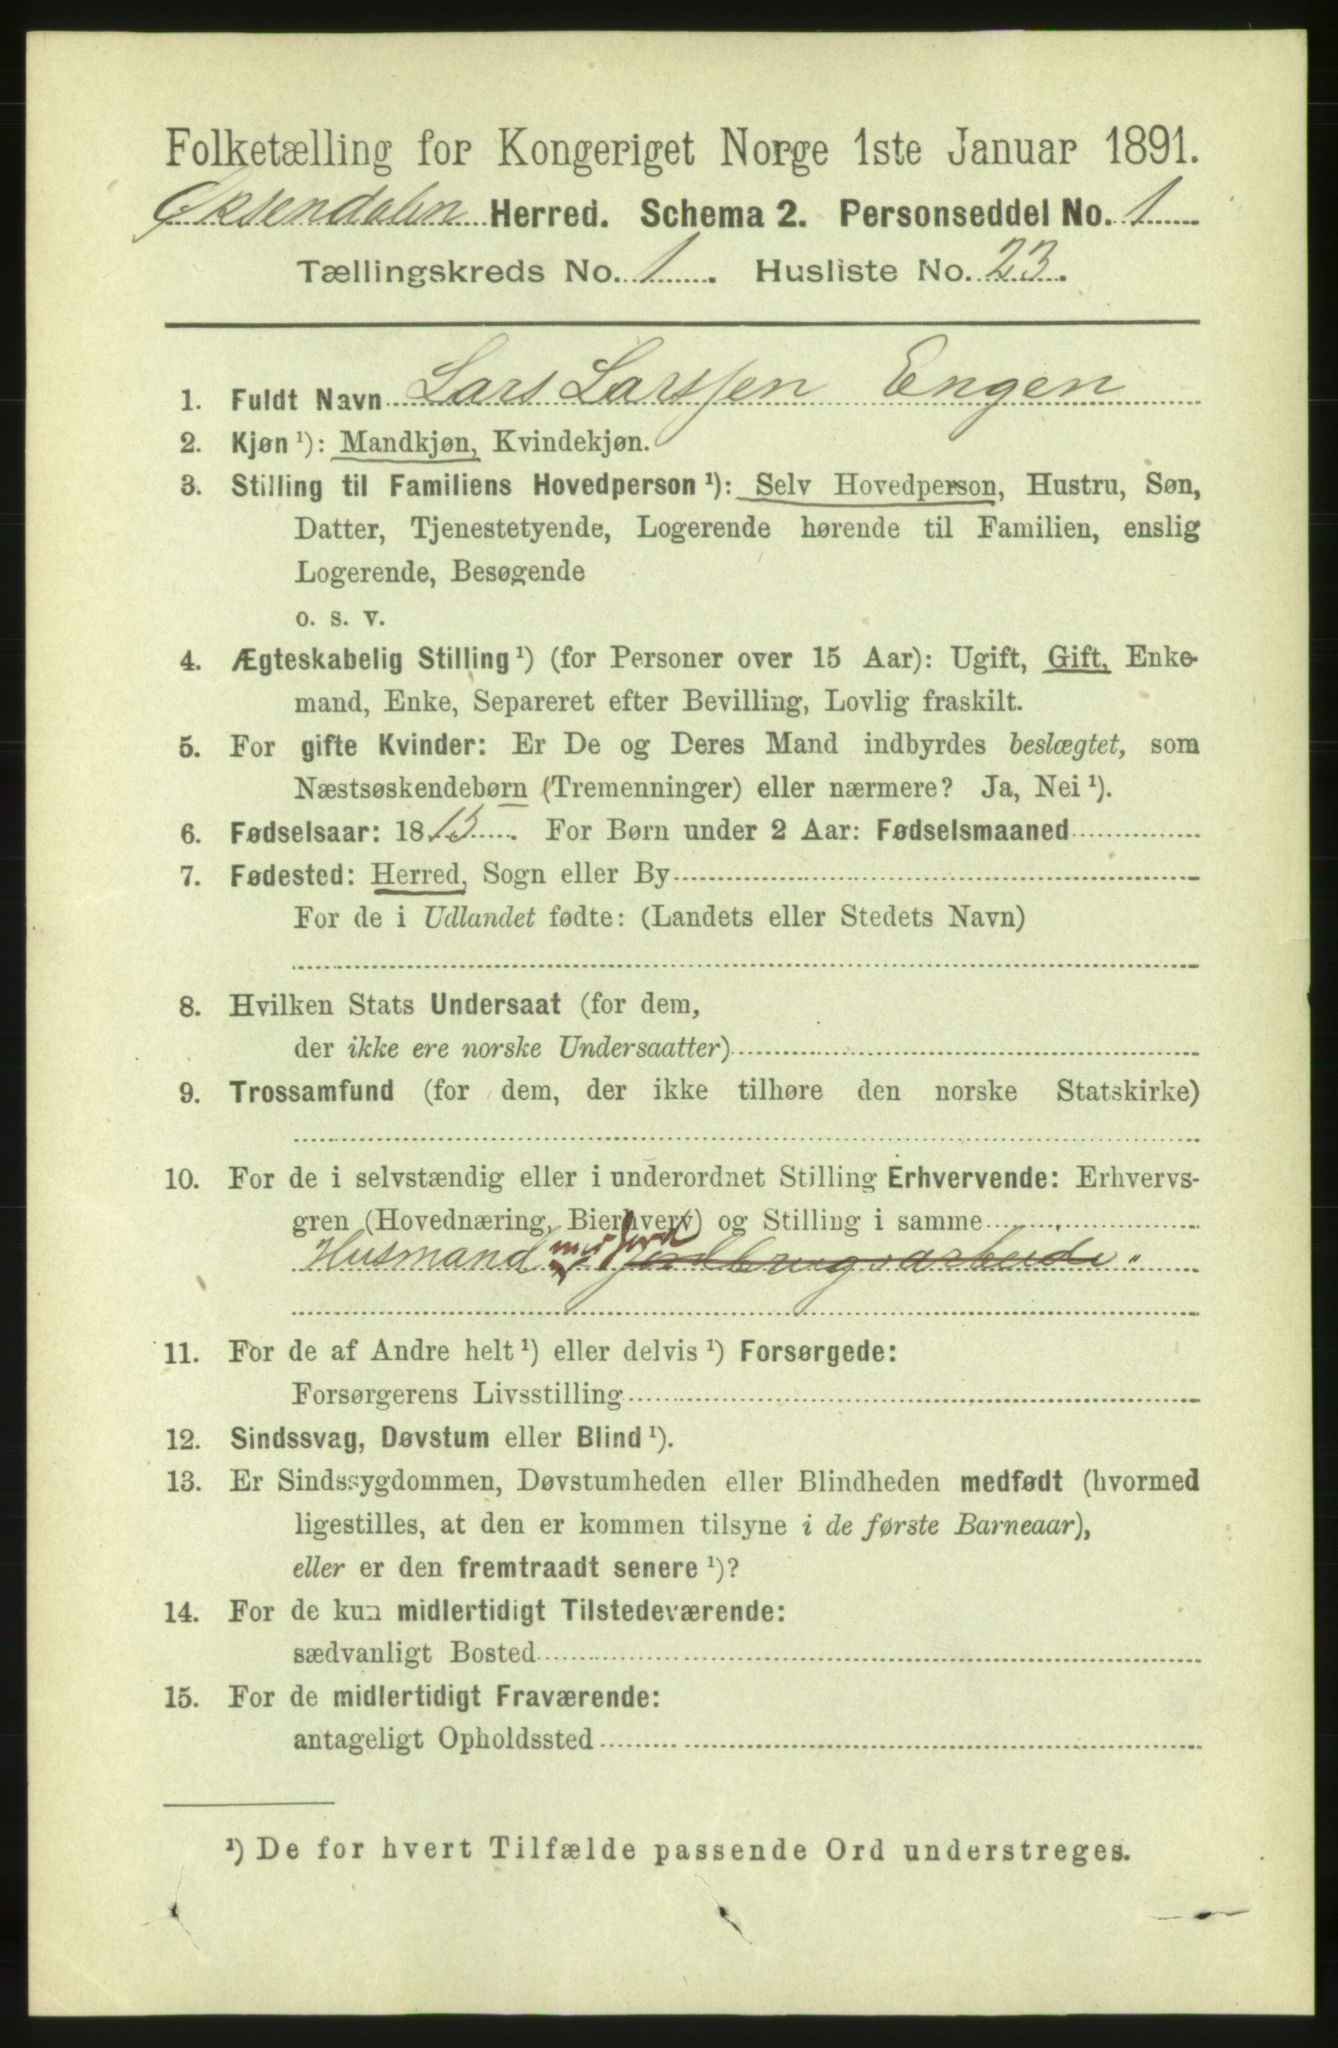 Folketælling for Kongeriget Norge 1ste Januar 1891.
Øksendalen Herred. Schema 2. Personseddel No. 1
Tællingskreds No. 1. Husliste No. 23.
1. Fuldt Navn Lars Larssen Engen
2. Kjøn ¹): Mandkjøn, Kvindekjøn.
3. Stilling til Familiens Hovedperson ¹): Selv Hovedperson, Hustru, Søn,
Datter, Tjenestetyende, Logerende hørende til Familien, enslig
Logerende, Besøgende
o. s. v.
4. Ægteskabelig Stilling ¹) (for Personer over 15 Aar): Ugift, Gift, Enke-
mand, Enke, Separeret efter Bevilling, Lovlig fraskilt.
5. For gifte Kvinder: Er De og Deres Mand indbyrdes beslægtet, som
Næstsøskendebørn (Tremenninger) eller nærmere? Ja, Nei ¹).
6. Fødselsaar: 1815. For Børn under 2 Aar: Fødselsmaaned
7. Fødested: Herred, Sogn eller By
For de i Udlandet fødte: (Landets eller Stedets Navn)
8. Hvilken Stats Undersaat (for dem,
der ikke ere norske Undersaatter)
9. Trossamfund (for dem, der ikke tilhøre den norske Statskirke)
10. For de i selvstændig eller i underordnet Stilling Erhvervende: Erhvervs-
gren (Hovednæring, Bierhverv) og Stilling i samme
Husmand med Jord jordbrugsarbeide "
11. For de af Andre helt ¹) eller delvis ¹) Forsørgede:
Forsørgerens Livsstilling
12. Sindssvag, Døvstum eller Blind ¹).
13. Er Sindssygdommen, Døvstumheden eller Blindheden medfødt (hvormed
ligestilles, at den er kommen tilsyne i de første Barneaar),
eller er den fremtraadt senere ¹)?
14. For de kun midlertidigt Tilstedeværende:
sædvanligt Bosted
15. For de midlertidigt Fraværende:
antageligt Opholdssted
¹) De for hvert Tilfælde passende Ord understreges.